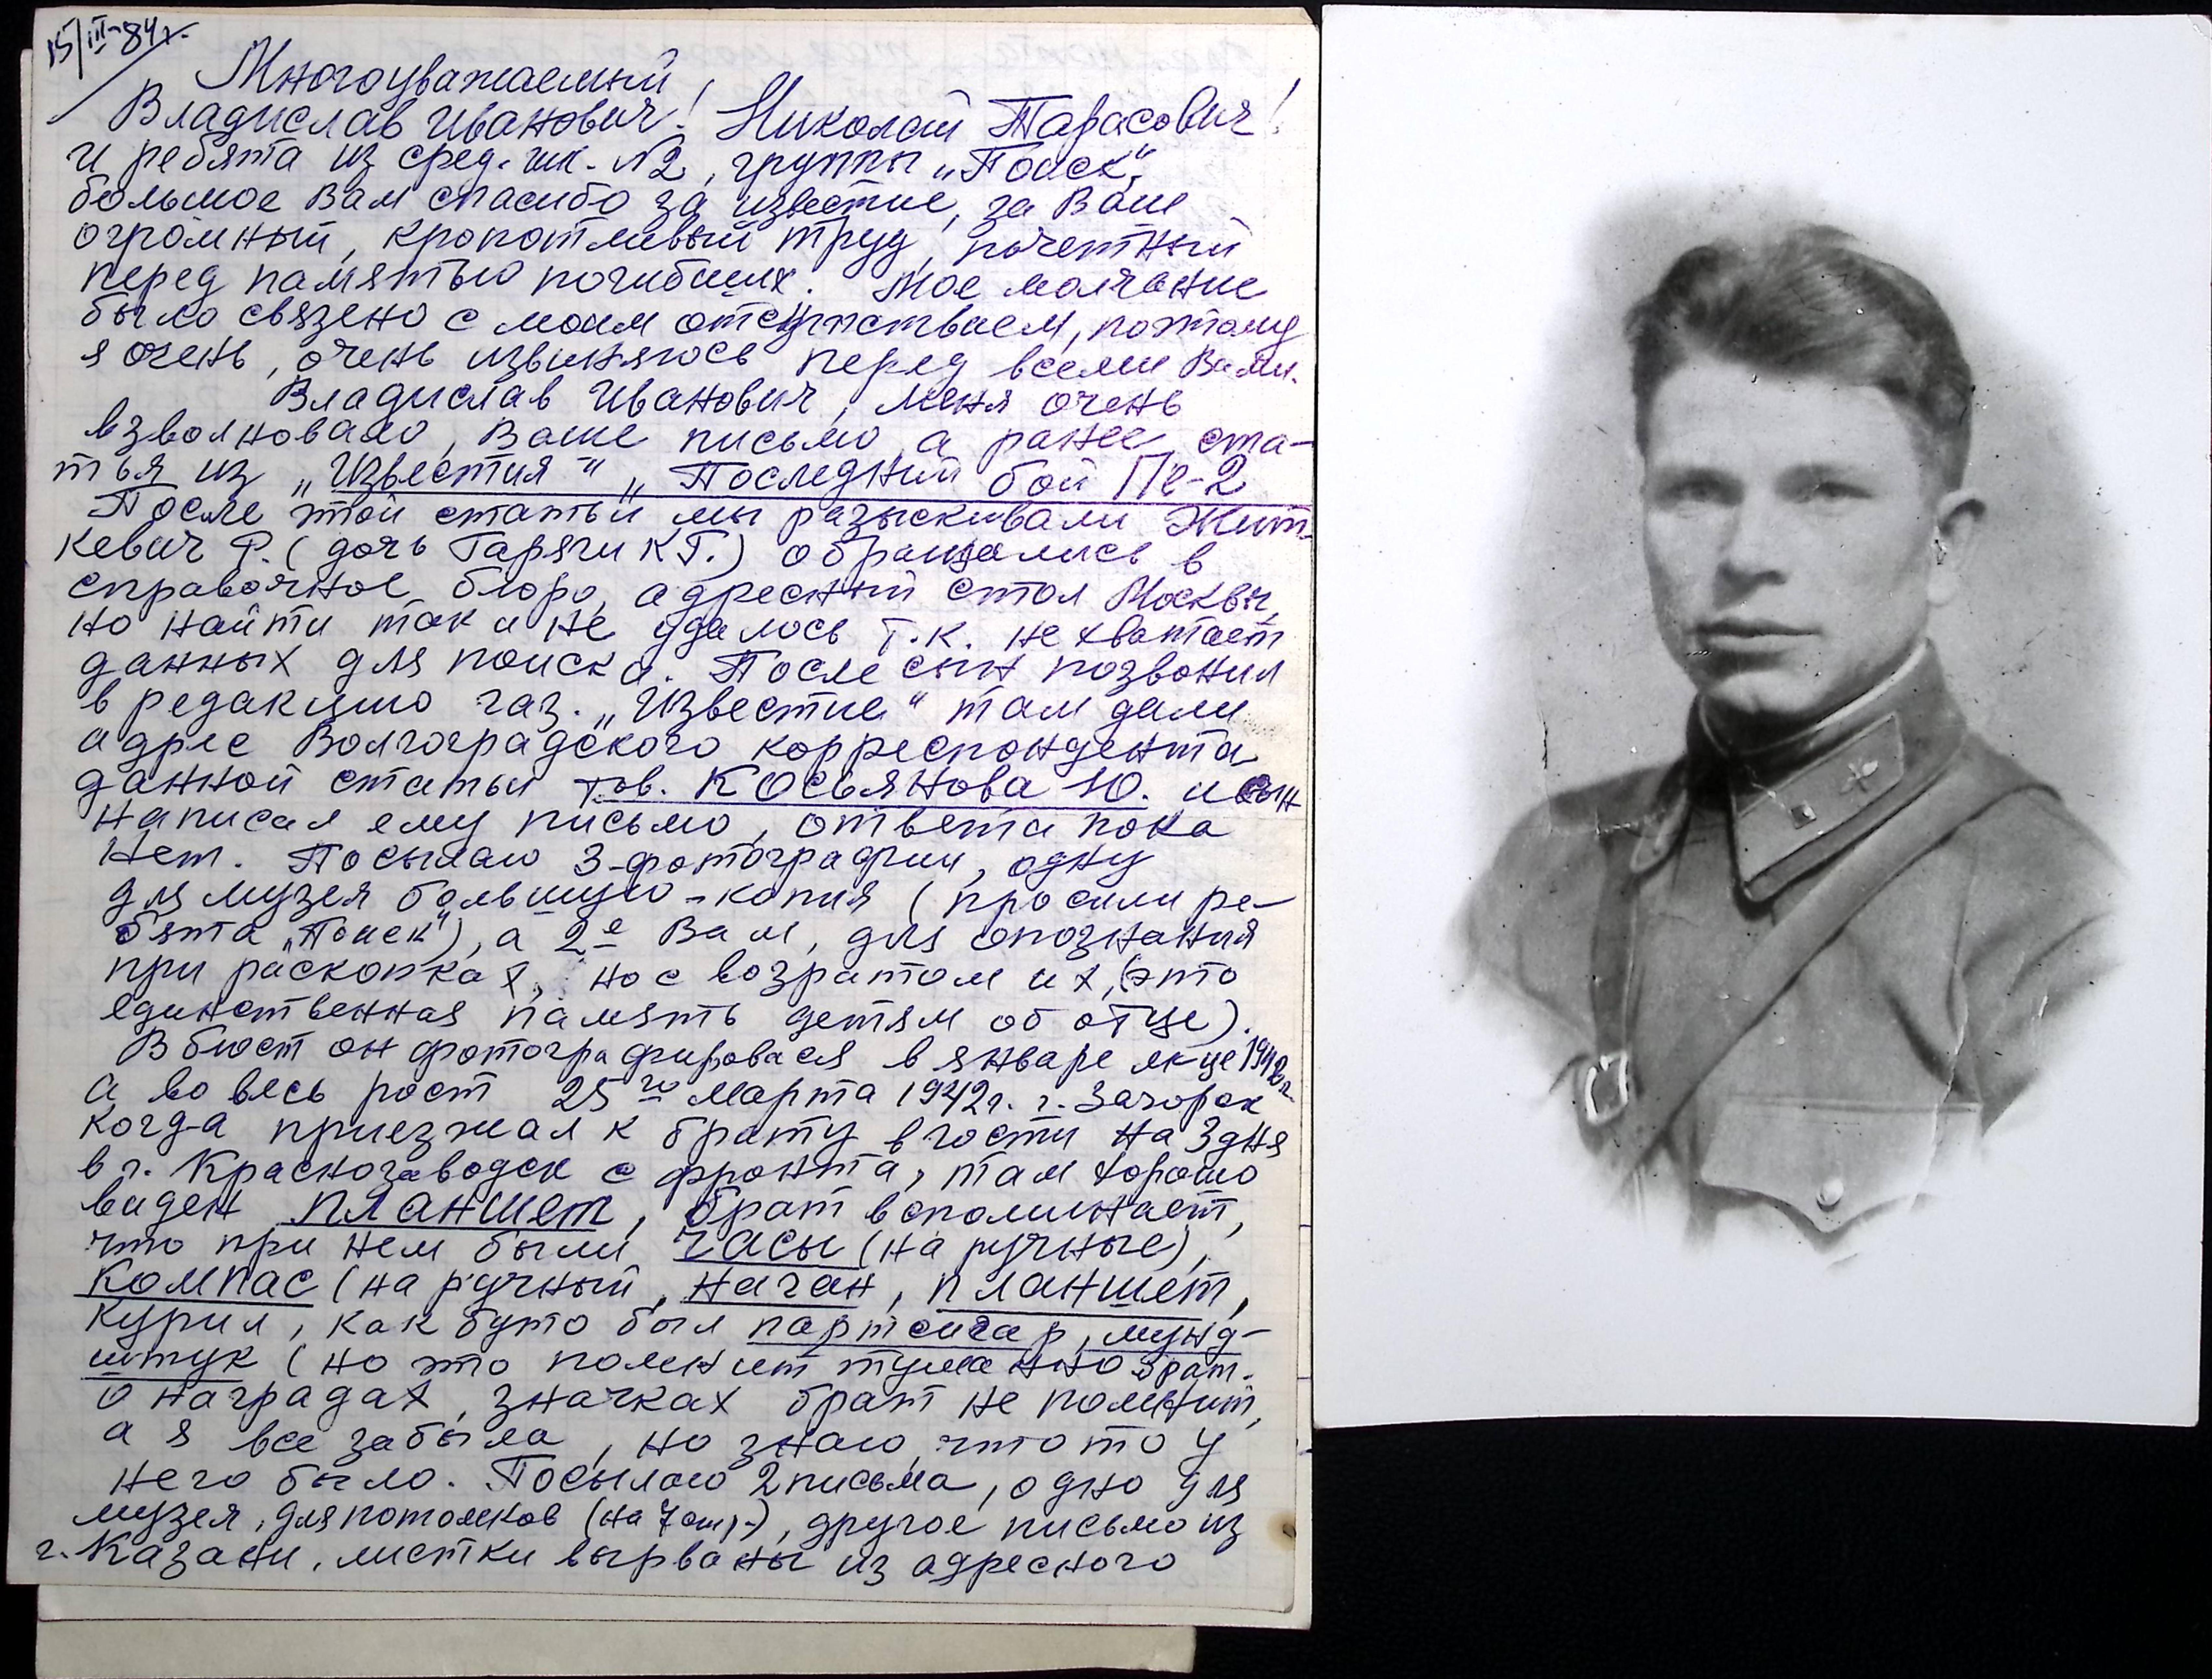 15/III-84г.
Многоуважаемый,
Владислав Иванович! Николай Тарасович!
и ребята из сред. шк. №2, группы „Поиск",
большое Вам спасибо за известие, за Ваш
огромный, кропотливый труд, почетный
перед памятью погибших. Мое молчание
было связено с моим отсутствием, поэтому
я очень, очень извиняюсь перед всеми Вами.
Владислав Иванович, меня очень
взволновало, Ваше письмо, а ранее ста-
тья из „Известия" „Последний бой Пе-2
После этой статьи мы разыскивали Жит-
кевич Р. (дочь Гарячи К Г.) обращались в
справочное бюро, адресный стол Москвы,
но найти так и не удалось т.к. не хватает
данных для поиска. После сын позвонил
в редакцию газ. „Известие" там дали
адрес Волгоградского корреспондента
данной статьи тов. КОсьянова Ю. и сын
написал ему письмо, ответа пока
нет. Посылаю 3-фотографии, одну
для музея большую - копия (просили ре-
бята „Поиск"), а 2е Вам, для опознания
при раскопках, но с возратом их, (это
единственная память детям об отце).
В бюст он фотографировася в январе м-це 1942г.
а во весь рост 25го Марта 1942г. г. Загорск
когда приезжал к брату в гости на 3 дня
в г. Краснозаводск с фронта, там хорошо
виден планшет, брат вспоминает,
что при нем были часы (на ручные),
компас (на ручный, наган, планшет,
курил, как буто был партсигар, мунд-
штук (но это помнит туманно брат.
О наградах, значках брат не помнит,
а я все забыла, но знаю, что то у
него было. Посылаю 2 письма, одно для
музея, для потомков (на 7 стр.), другое письмо из
г. Казани, листки вырваны из адресного